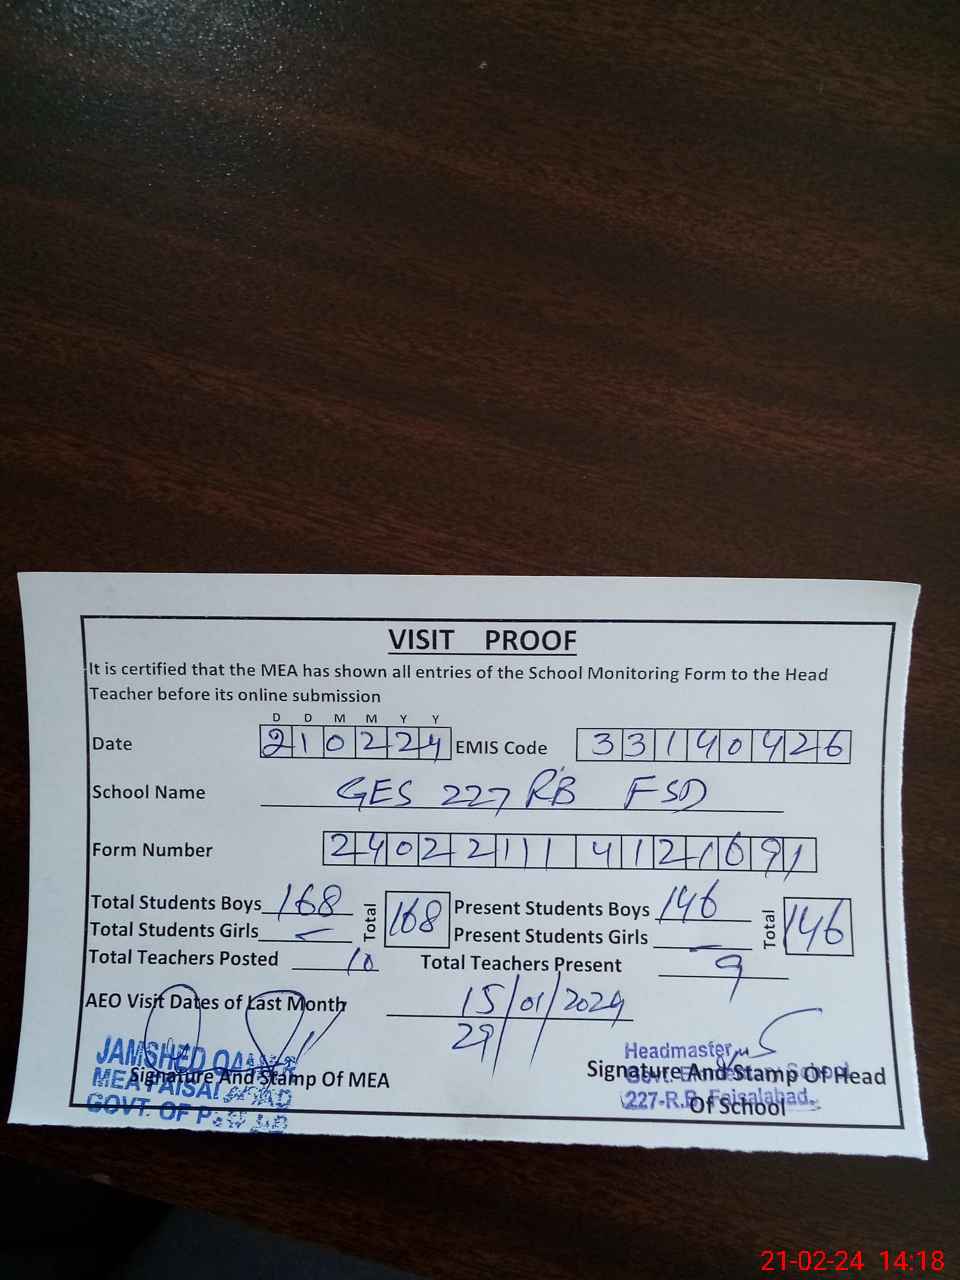 VISIT PROOF
It is certified that the MEA has shown all entries of the School Monitoring Form to the Head
Teacher before its online submission
D D M M Y Y
Date 210224 EMIS Code 33140426
School Name GES 227 RB FSD
Form Number 24022111 4121691
Total Students Boys 168 Total 168 Present Students Boys 146 Total 146
Total Students Girls – Present Students Girls –
Total Teachers Posted 10 Total Teachers Present 9
AEO Visit Dates of Last Month 15/01/2024
29
JAMSHED
MEA FAISALABAD
GOVT. OF
Signature And Stamp Of MEA
Headmaster
Govt. School
227-R.B. Faisalabad.
Signature And Stamp Of Head
Of School
21-02-24 14:18